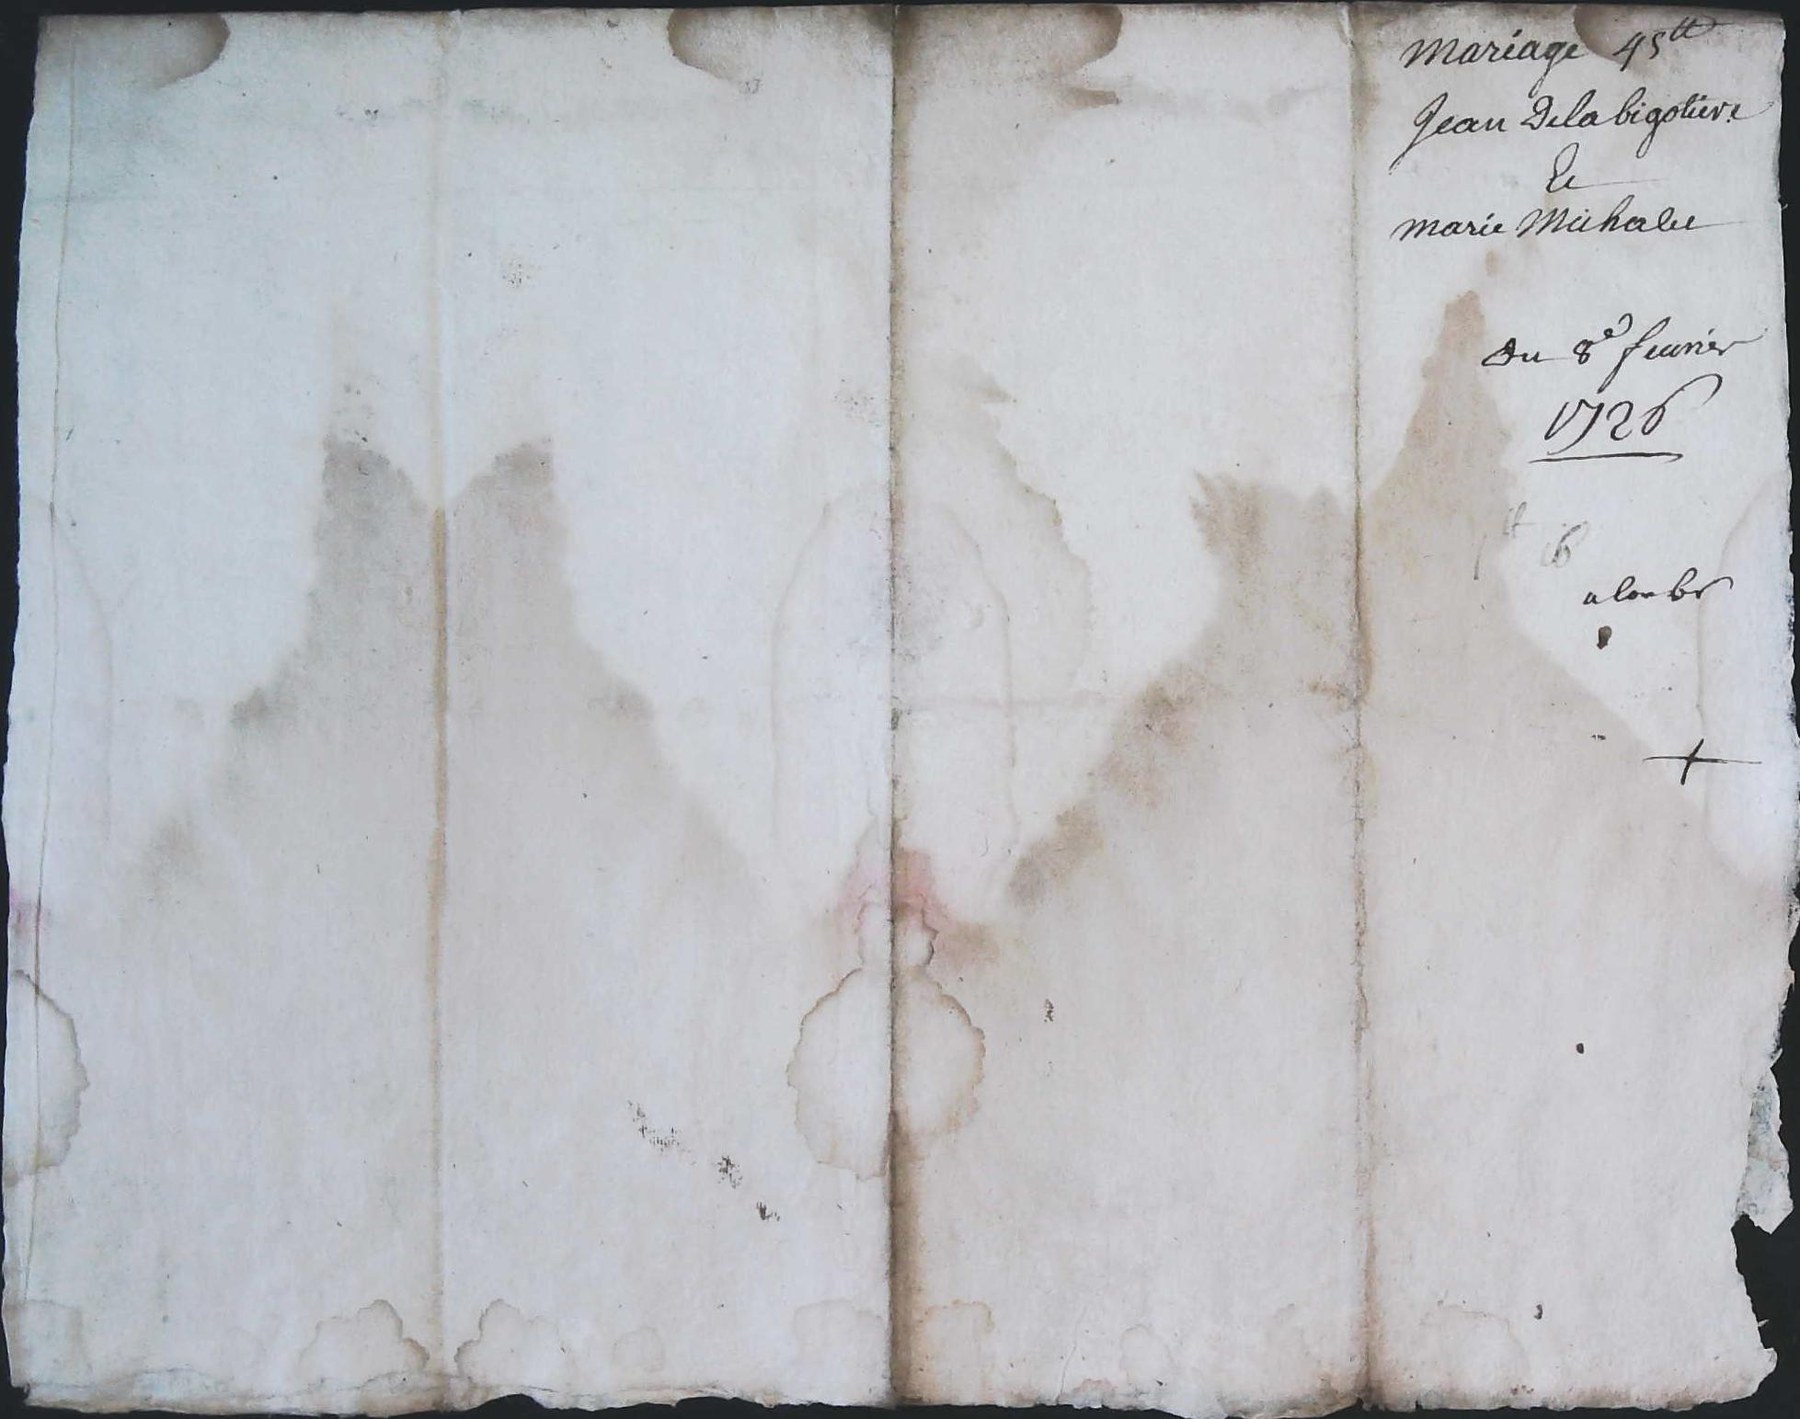 Mariage 45tt
Jean Delabigotiere
Et
marie Michalet
Du 8e feurier
1726